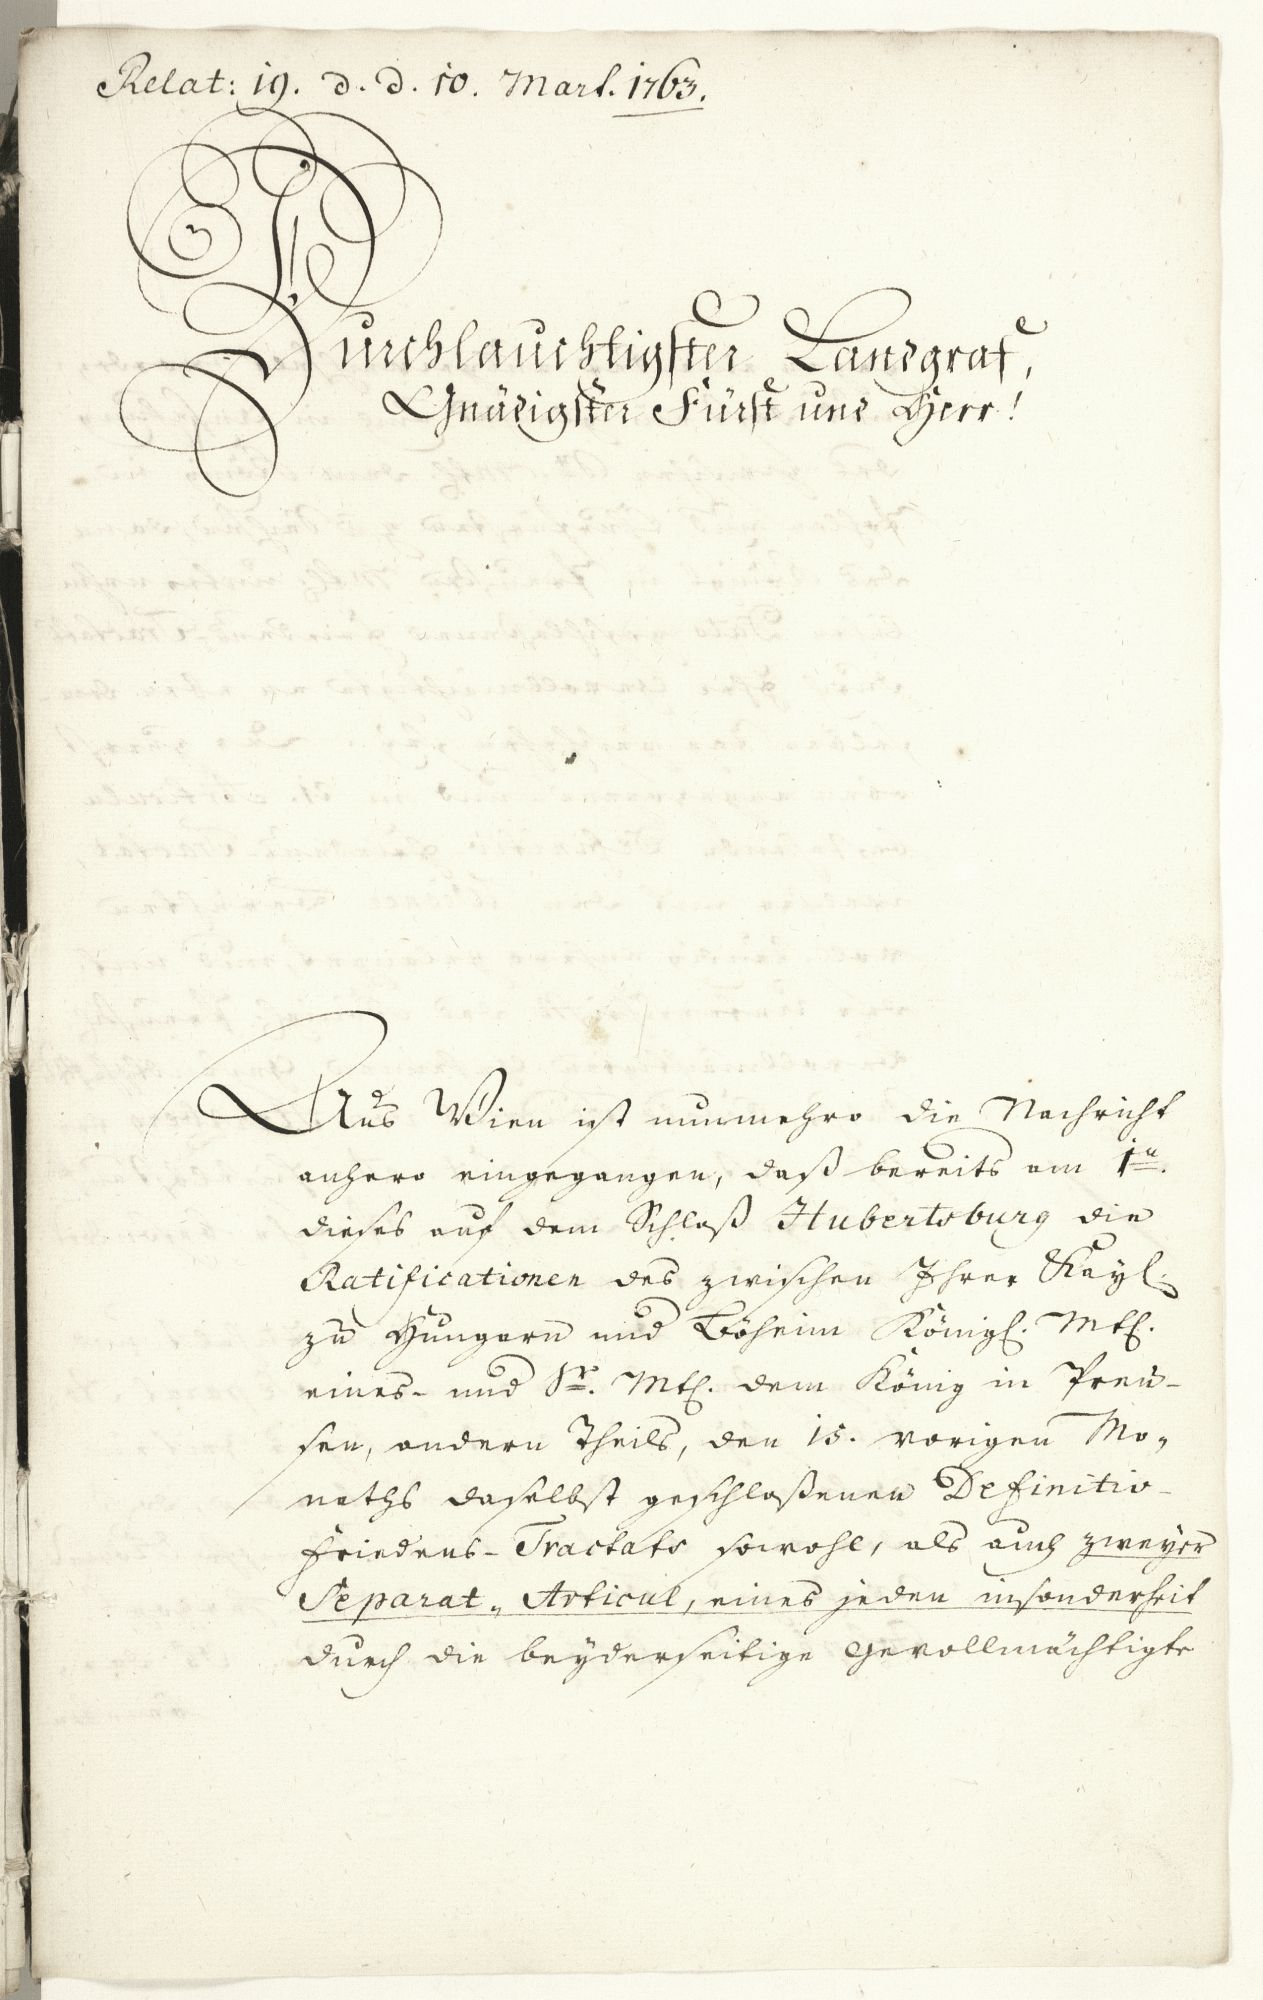 Relat: 19. d. d. 10. Mart. 1763.
Durchlauchtigster Landgraf,
Gnädigster Fürst und Herr!
Aus Wien ist nunmehro die Nachricht
anhero eingegangen, daß bereits am 1n.
dieses auf dem Schloß Hubertsburg die
Ratificationen des zwischen Ihrer Kayl.
zu Hungarn und Böheim Königl. Mtl.
eines- und Sr. Mtl. dem König in Preu-
sen, andern Theils, den 15. vorigen Mo-
naths daselbst geschloßenen Definitiv-
Friedens-Tractats sowohl, als auch zweyer
Separat-Articul, eines jeden insonderheit
durch die beyderseitige Gevollmächtigte